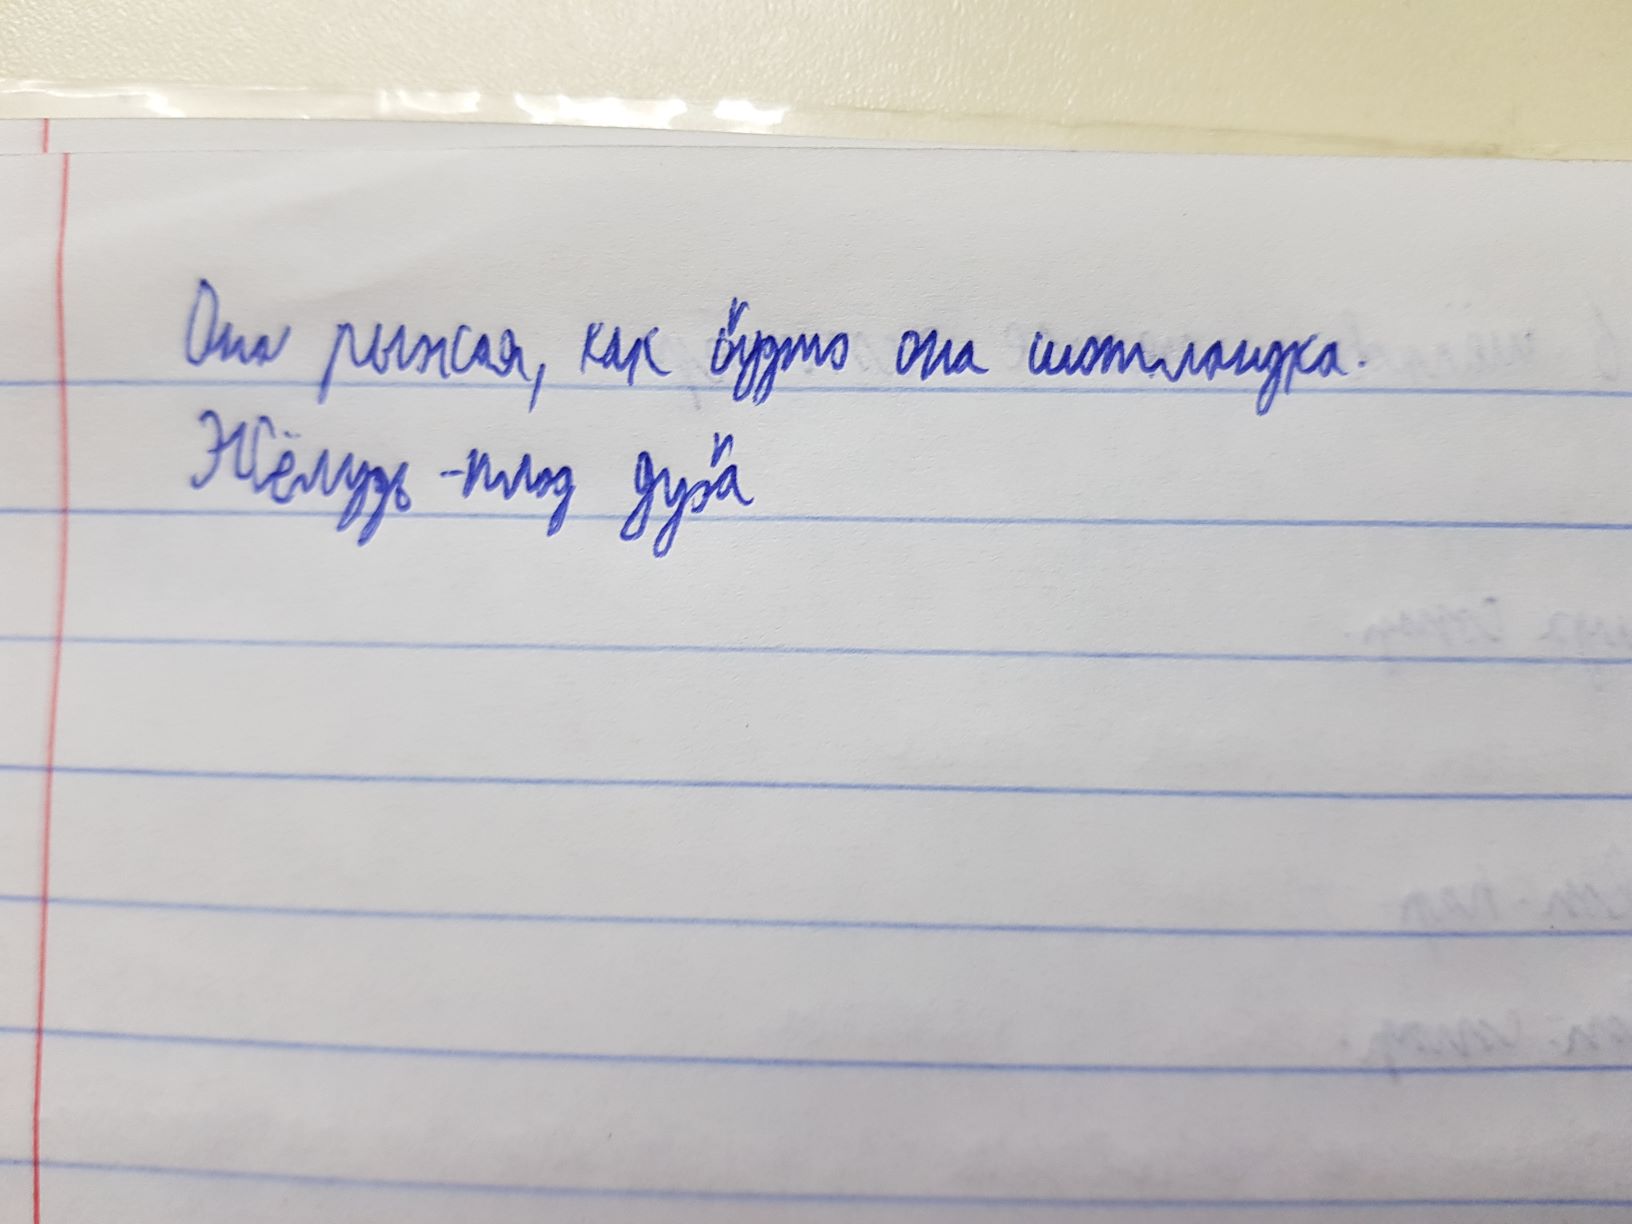 Она рыжая, как будто она шотландка.
Жёлудь - плод дуба